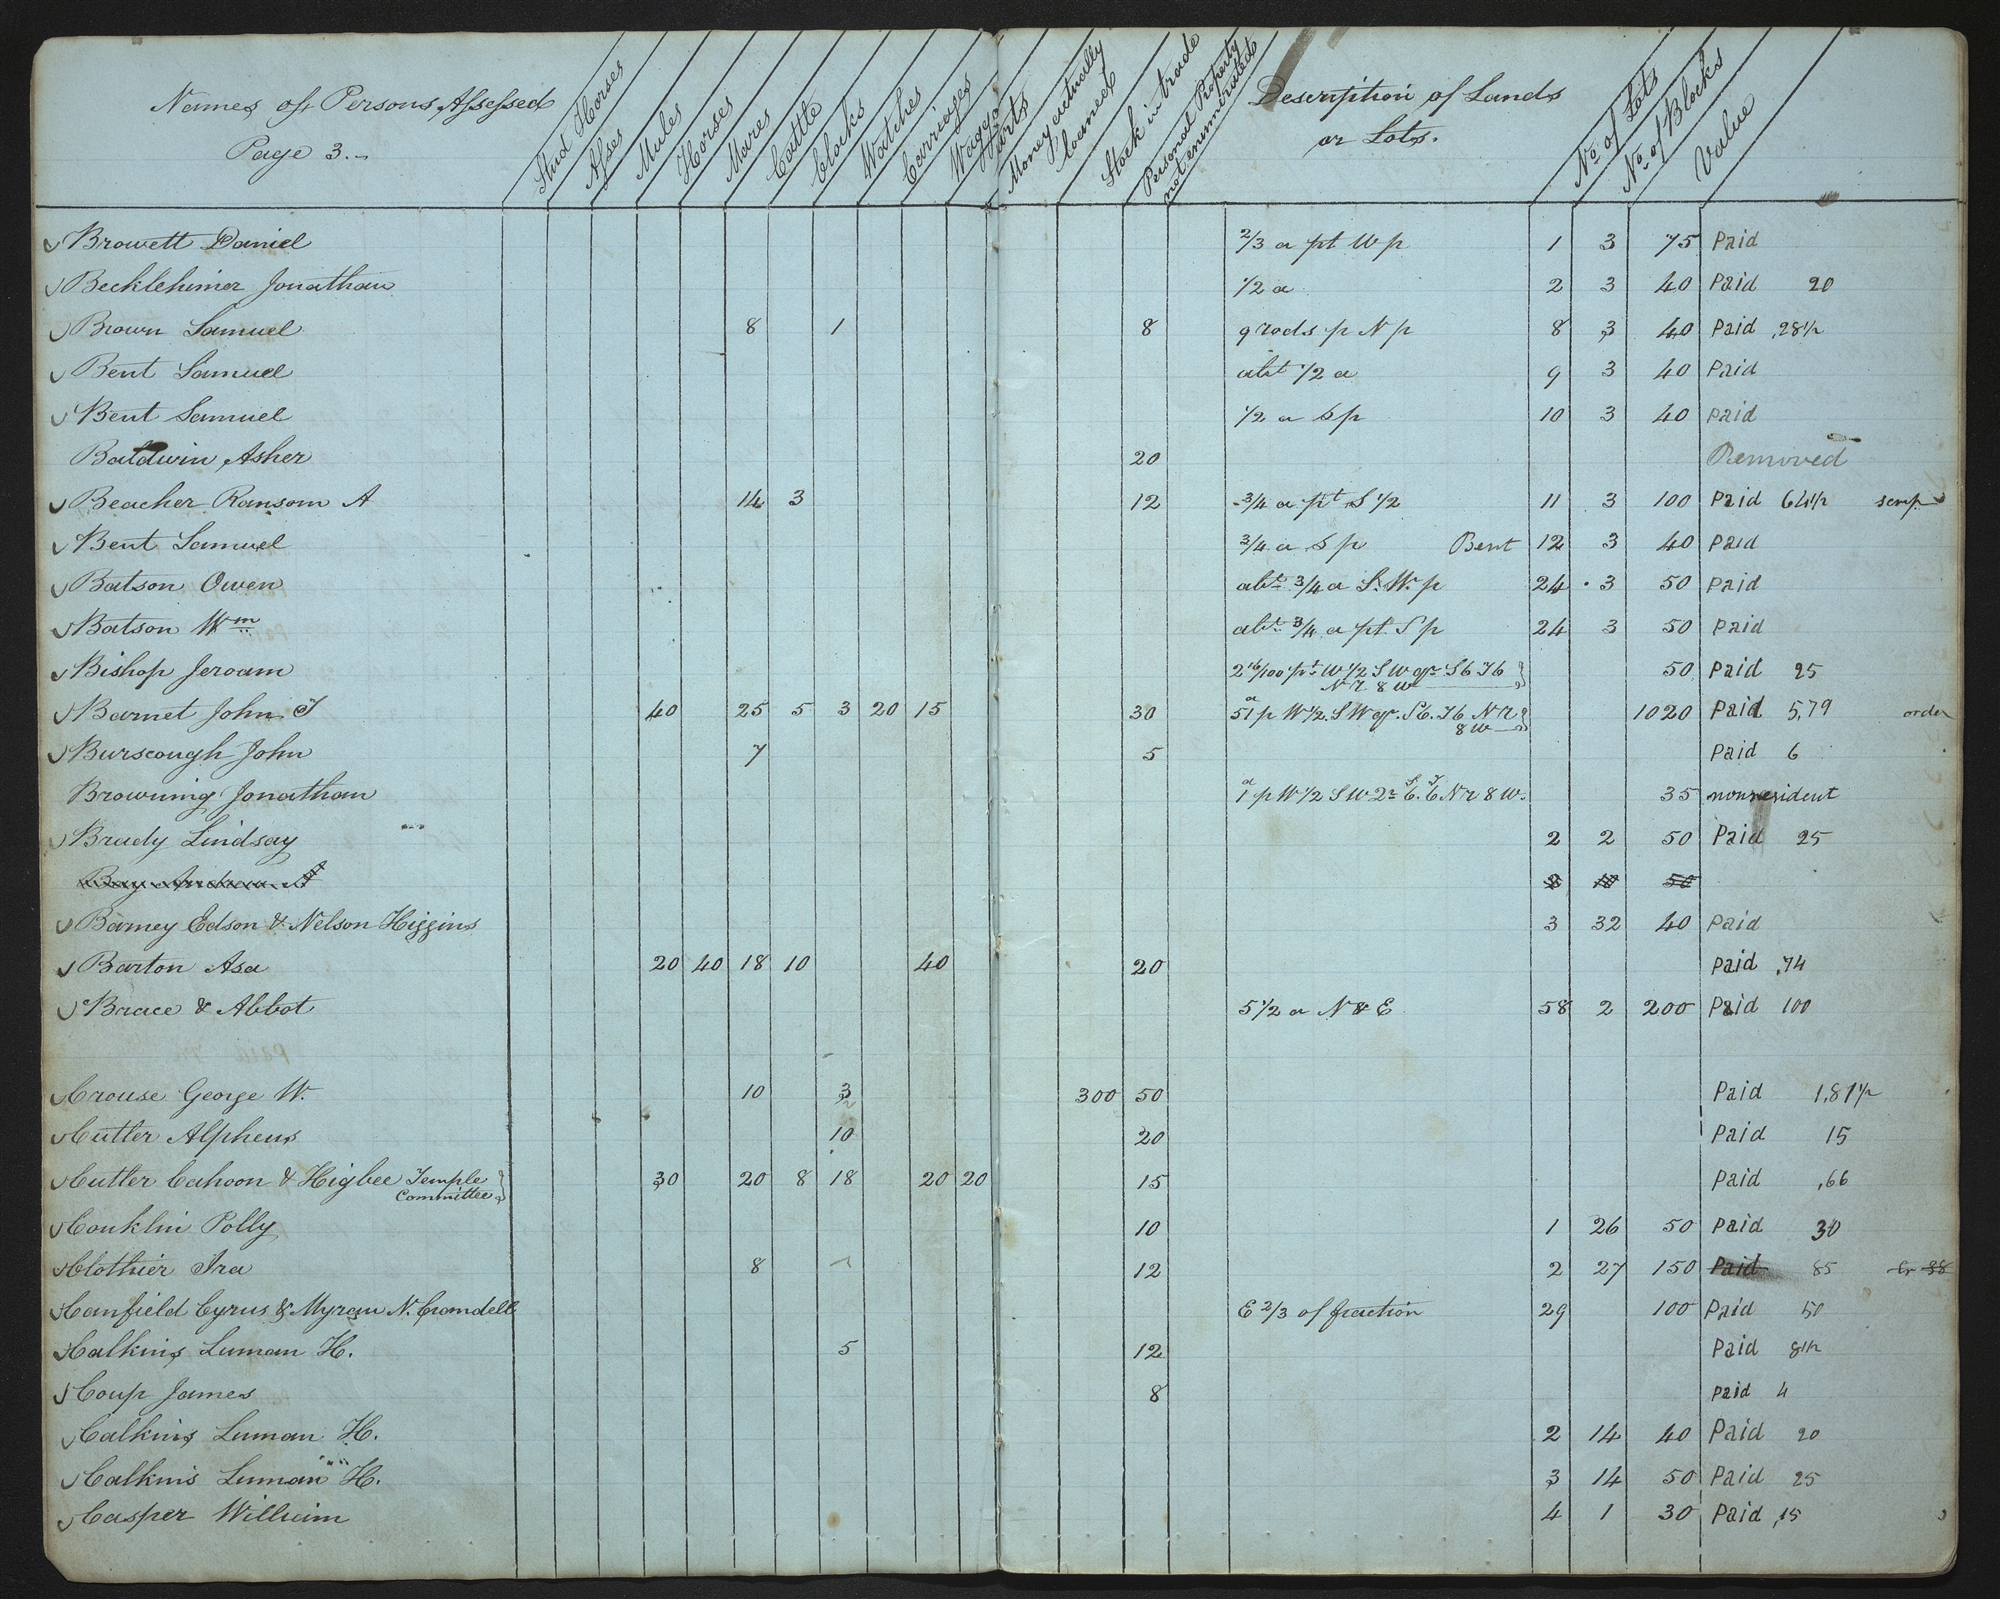 Names of Persons Assessed
Page 3.
Stud Horses
Asses
Mules
Horses
Mares
Cattle
Clocks
Watches
Carriages
Waggons
Carts
Money actually loaned
Stock in trade
Personal Property not enumerated
Description of Lands
or Lots.
No. of Lots
No. of Blocks
Value
Browett Daniel 2/3 a pt W p 1 3 75 Paid
Becklehimer Jonathan 1/2 a 2 3 40 Paid 20
Brown Samuel 8 1 8 9 rods p N p 8 3 40 Paid ,28 1/2
Bent Samuel abt 1/2 a 9 3 40 Paid
Bent Samuel 1/2 a S p 10 3 40 Paid
Baldwin Asher 20 Removed
Beacher Ransom A 14 3 12 3/4 a pt S 1/2 11 3 100 Paid 64 1/2 scrip
Bent Samuel 3/4 a S p Bent 12 3 40 Paid
Batson Owen abt 3/4 a S. W. p 24 3 50 Paid
Batson Wm abt 3/4 a pt S p 24 3 50 Paid
Bishop Jeroam 2 16/100 pt W 1/2 S W qr S6 T6 N r 8 W 50 Paid 25
Barnet John T 40 25 5 3 20 15 30 51 a p W 1/2. S W qr. S 6. T6 N r 8 W 1020 Paid 5,79 order
Burscough John 7 5 Paid 6
Browning Jonathan 1 a p W 1/2 S W qr S 6. T 6 N r 8 W. 35 nonresident
Brady Lindsay 2 2 50 Paid 25
Bay Andrew A 50
Barney Edson & Nelson Higgins 3 32 40 Paid
Barton Asa 20 40 18 10 40 20 Paid ,74
Brace & Abbot 5 1/2 a N & E 58 2 200 Paid 100
Crouse George W. 10 3 300 50 Paid 1,81 1/2
Cutler Alpheus 10 20 Paid 15
Cutler Cahoon & Higbee Temple Committee 30 20 8 18 20 20 15 Paid ,66
Conklin Polly 10 1 26 50 Paid 30
Clothier Ira 8 12 2 27 150 Paid 85
Canfield Cyrus & Myram N. Crandell E 2/3 of fraction 29 100 Paid 50
Calkins Luman H. 5 12 Paid 8 1/2
Coup James 8 Paid 4
Calkins Luman H. 2 14 40 Paid 20
Calkins Luman H. 3 14 50 Paid 25
Casper William 4 1 30 Paid ,15